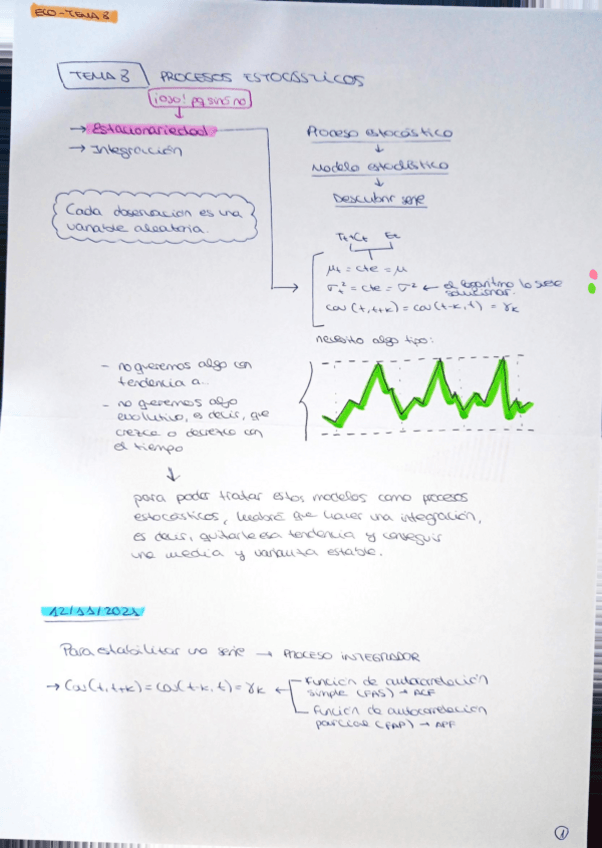 ECO-TEMA 3
TEMA 3 PROCESOS ESTOCÁSTICOS
¡OJO! pq sino no
→ Estacionariedad
→ Integración
Proceso estocástico
↓
Modelo estadístico
↓
Describir serie
Cada observación es una
variable aleatoria.
Tt+Ct Et
μt = cte = μ
σt² = cte = σ² ← el logaritmo lo suele
solucionar.
cov (t, t+k) = cov (t-k, t) = γk
necesito algo tipo:
- no queremos algo con
tendencia a...
- no queremos algo
evolutivo, es decir, que
crezca o decrezca con
el tiempo
↓
para poder tratar estos modelos como procesos
estocásticos, habrá que hacer una integración,
es decir, quitarle esa tendencia y conseguir
una media y varianza estable.
12/11/2021
Para estabilizar una serie → PROCESO INTEGRADOR
→ Cov(t, t+k) = cov(t-k, t) = γk ← Función de autocorrelación
simple (FAS) → ACF
Función de autocorrelación
parcial (FAP) → APF
1